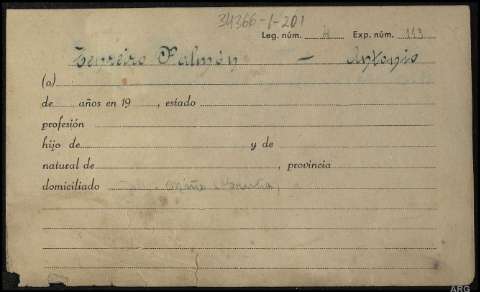 34366-1-201
Leg. núm. 4 Exp. núm. 113
Terreiro Palmón — Antonio
(a)
de años en 19 , estado
profesión
hijo de y de
natural de , provincia
domiciliado
ARG